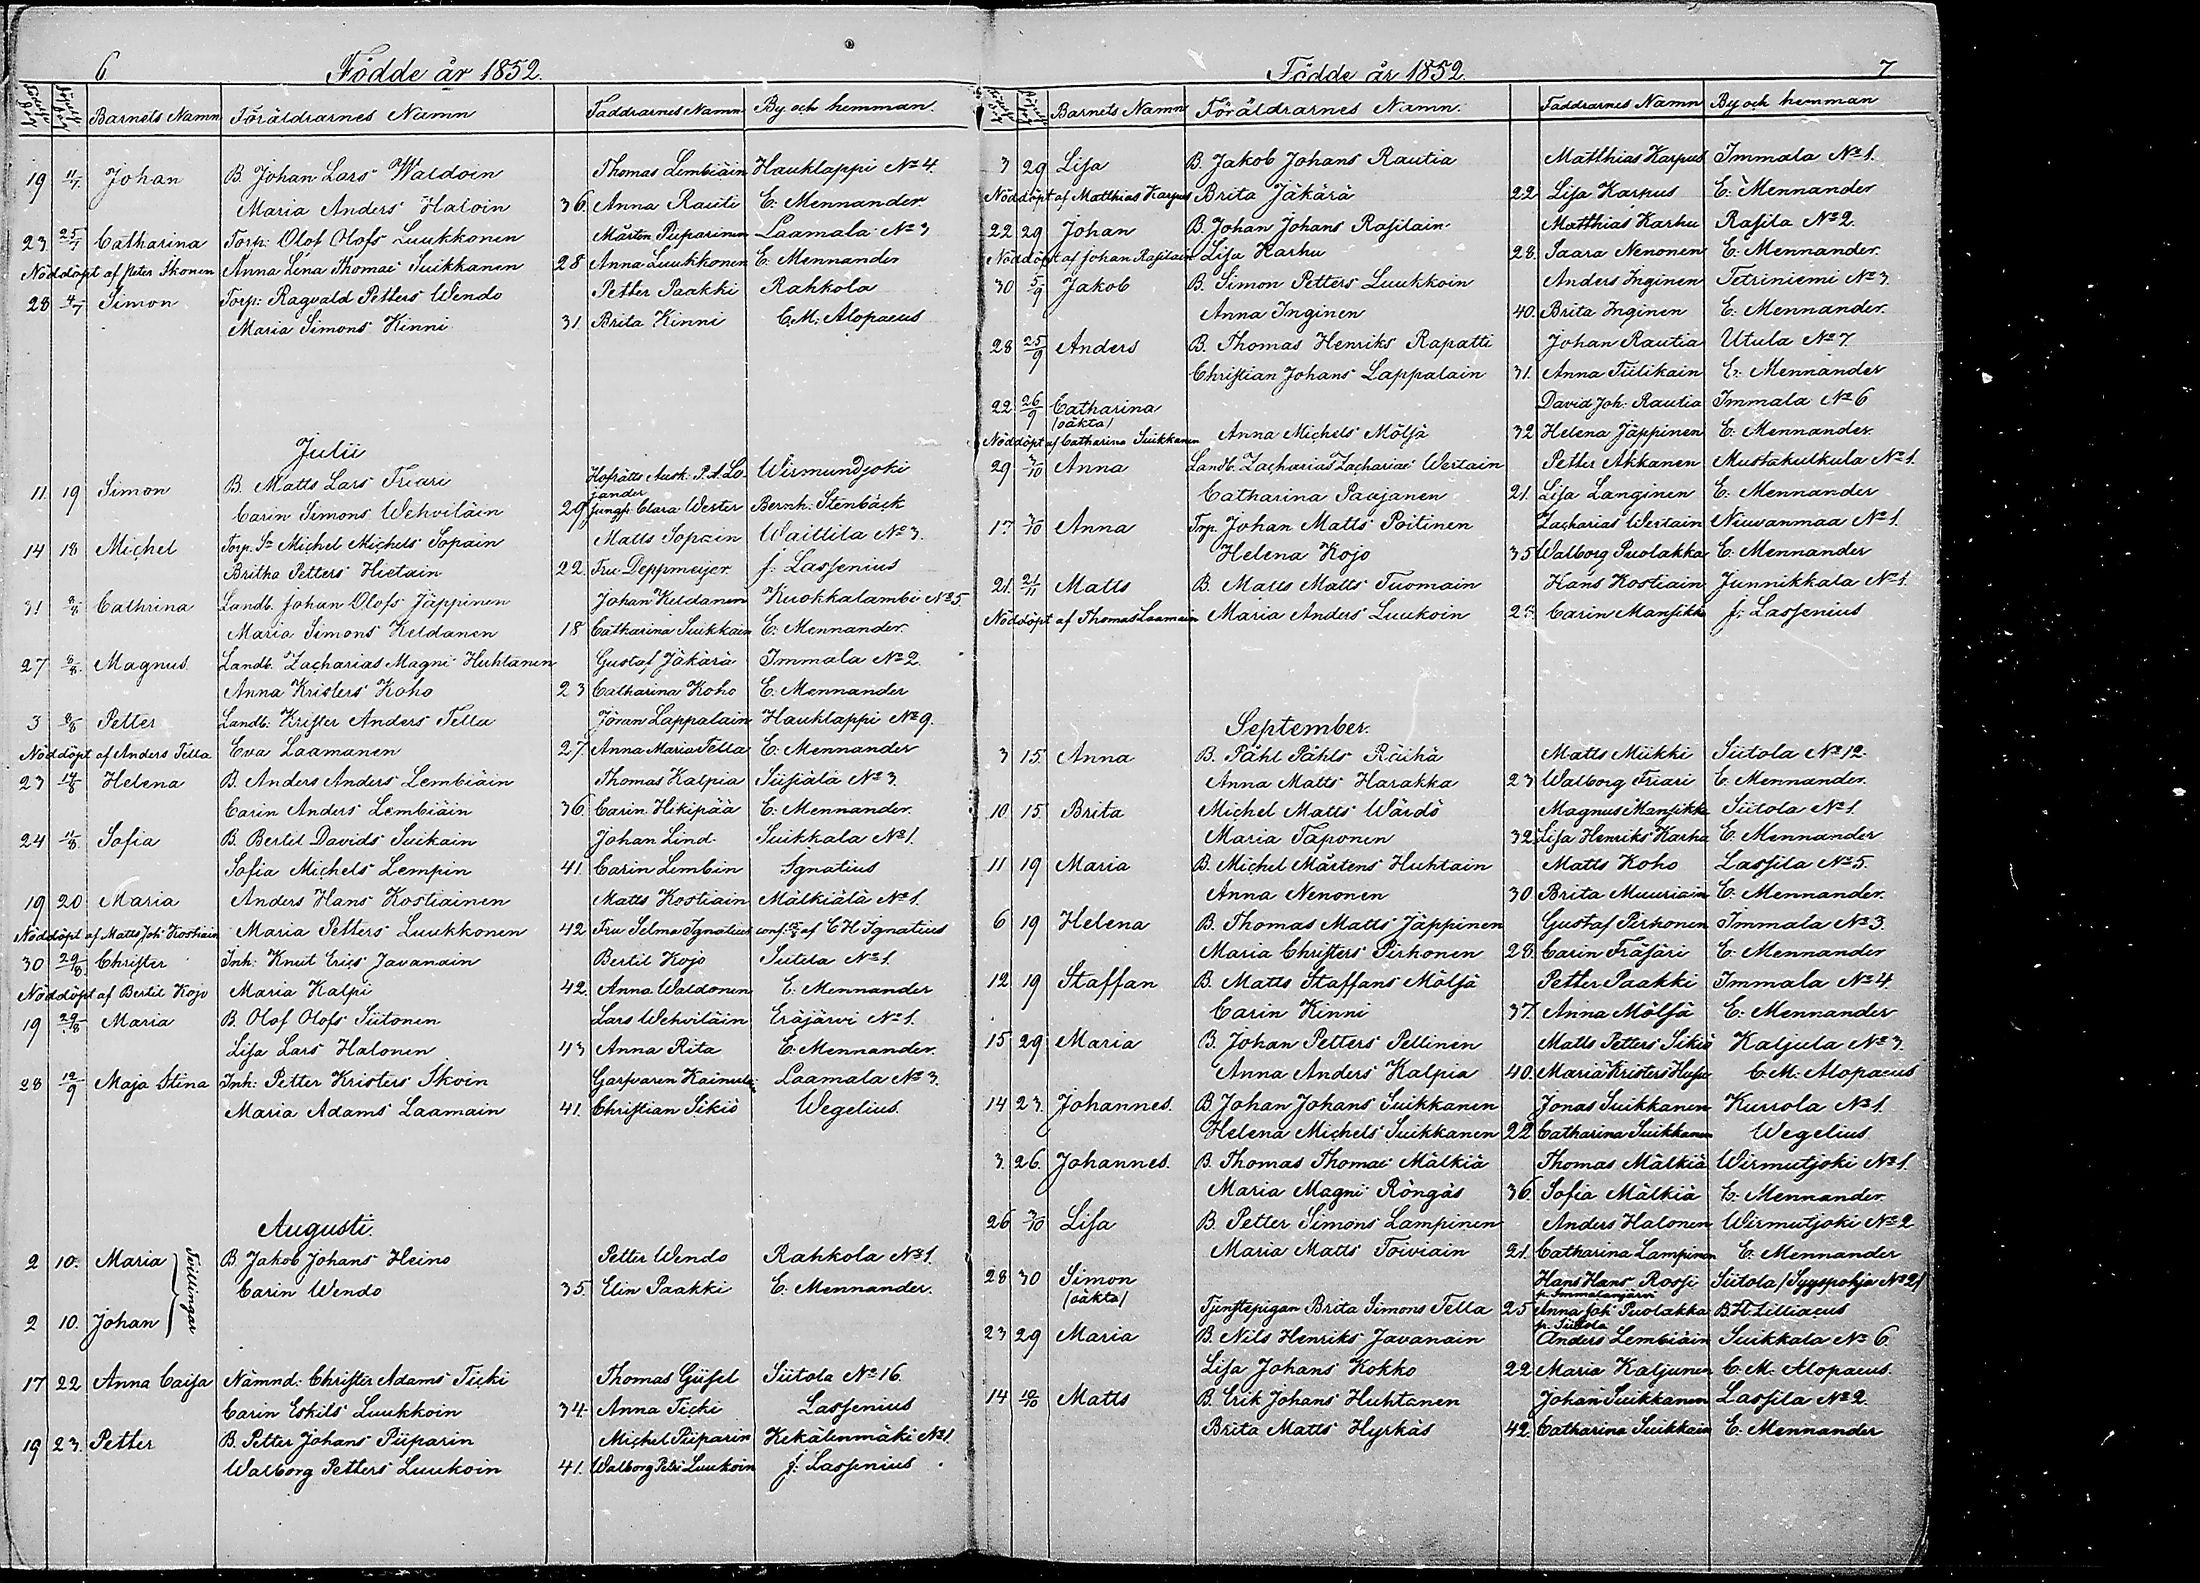 6 Födde år 1852.
Födelse dag Döpelse dag Barnets Namn Föräldrarnes Namn Faddrarnes Namn By och hemman.
19 11/7 Johan B. Johan Lars Waldoin Thomas Lembiäin Hauklappi No 4.
Maria Anders Haloin 36. Anna Rauti E. Mennander
23 25/7 Catharina Torp. Olof Olofs Luukkonen Mårten Piiparinen Laamala No 3
Nöddöpt af Peter Ikonen Anna Lena Thomae Suikkanen 28 Anna Luukkonen E. Mennander
28 4/7 Simon Torp. Ragvald Petters Wendo Petter Paakki Rahkola
Maria Simons Kinni 31 Brita Kinni C.M. Alopaeus
Julii
11. 19 Simon B. Matts Lars Friari Hofrätts Ausk. P. A. Lojander Wirmundjoki
Carin Simons Wehviläin 29 Jungfr. Clara Wester Bernh. Stenbäck
14 18 Michel Torp. Sn Michel Michels Sopain Matts Sopain Waittila No 3.
Britha Petters Hietain 22. Fru Deppmeijer. J. Lassenius
31 8/8 Cathrina Landb. Johan Olofs Jäppinen Johan Keldanen Kuokkalambi No 5
Maria Simons Keldanen 18 Catharina Suikkain E. Mennander.
27 8/8 Magnus Landb. Zacharias Magni Huhtanen Gustaf Jäkärä Immala No 2.
Anna Kristers Koho 23 Catharina Koho E. Mennander
3 8/8 Petter Landb. Krister Anders Tella Jöran Lappalain Hauklappi No 9.
Nöddöpt af Anders Tella Eva Laamanen 27. Anna Maria Tella E. Mennander
23 14/8 Helena B. Anders Anders Lembiäin Thomas Kalpia Siisiälä No 3.
Carin Anders Lembiäin 36 Carin Hikipää E. Mennander.
24 11/8 Sofia B. Bertil Davids Suikain Johan Lind. Suikkala No 1.
Sofia Michels Lempin 41. Carin Lembin Ignatius
19 20 Maria Anders Hans Kostiainen Matts Kostiain Mälkiälä No 1.
Nöddöpt af Matts Joh. Kostiain Maria Petters Luukkonen 42 Fru Selma Ignatius conf. af C H Ignatius
30 29/8 Christer Inh. Knut Erics Javanain Bertil Kojo Siitola No 1.
Nöddöpt af Bertil Kojo Maria Kalpi 42. Anna Waldonen E. Mennander
19 29/8 Maria B. Olof Olofs Siitonen Lars Wehviläin Eräjärvi No 1.
Lisa Lars Halonen 43 Anna Rita E. Mennander.
28 12/9 Maja Stina Inh. Petter Kristers Ikoin Garfvaren Kainulain Laamala No 3.
Maria Adams Laamain 41. Christian Sikiö Wegelius.
Augusti.
2 10. Maria B. Jakob Johans Heino Petter Wendo Rahkola No 1.
Tvillingar
Carin Wendo 35. Elin Paakki E. Mennander.
2 10. Johan
17 22 Anna Caisa Nämnd. Christer Adams Ticki Thomas Giisel Siitola No 16.
Carin Eskils Luukkoin 34. Anna Ticki Lassenius
19 23. Petter B. Petter Johans Piiparin Michel Piiparin Kekälenmäki No 1
Walborg Petters Luukoin 41. Walborg Petri Luukoin J. Lassenius
Födde år 1852. 7
Födelse dag Döpelse dag Barnets Namn Föräldrarnes Namn. Faddrarnes Namn By och hemman
3 29 Lisa B. Jakob Johans Rautia Matthias Karpus Immala No 1.
Nöddöpt af Matthias Karpus Brita Jäkärä 22 Lisa Karpus E. Mennander
22 29 Johan B. Johan Johans Rasilain Matthias Karhu Rasila No 2.
Nöddöpt af Johan Rasilain Lisa Karhu 28. Saara Nenonen E. Mennander.
30 5/9 Jakob B. Simon Petters Luukkoin Anders Inginen Tetriniemi No 3
Anna Inginen 40. Brita Inginen E. Mennander.
28 25/9 Anders B. Thomas Henriks Rapatti Johan Rautia Utula No 7
Christian Johans Lappalain 31. Anna Tiilikain E. Mennander
22 26/9 Catharina David Joh. Rautia Immala No 6
(oäkta)
Nöddöpt af Catharina Suikkanen Anna Michels Mölsä 32 Helena Jäppinen E. Mennander.
29 3/10 Anna Landb. Zacharias Zachariae Wertain Petter Akkanen Mustakulkula No 1.
Catharina Paajanen 21. Lisa Langinen E. Mennander
17. 3/10 Anna Torp. Johan Matts Poitinen Zacharias Wertain Niuvanmaa No 1.
Helena Kojo 35 Walborg Puolakka E. Mennander
21. 21/11 Matts B. Matts Matts Tuomain Hans Kostiain Junnikkala No 1.
Nöddöpt af Thomas Laamain Maria Anders Luukoin 25. Carin Mansikka J. Lassenius
September.
3 15. Anna B. Påhl Påhls Räihä Matts Miikki Siitola No 12.
Anna Matts Harakka 23 Walborg Friari E. Mennander.
10. 15. Brita Michel Matts Wärdö Magnus Mansikka Siitola No 1.
Maria Taponen 32 Lisa Henriks Karhu E. Mennander
11 19 Maria B. Michel Mårtens Huhtain Matts Koho Lassila No 5.
Anna Nenonen 30 Brita Muuriain E. Mennander.
6 19 Helena B. Thomas Matts Jäppinen Gustaf Pirhonen Immala No 3.
Maria Christers Pirhonen 28. Carin Träsäri E. Mennander
12 19 Staffan B. Matts Staffans Mölsä Petter Paakki Immala No 4
Carin Kinni 37. Anna Mölsä E. Mennander
15 29 Maria B. Johan Petters Pellinen Matts Petters Sikiö Kaljula No 3
Anna Anders Kalpia 40. Maria Kristers C. M. Alopaeus
14 23. Johannes. B. Johan Johans Suikkanen Jonas Suikkanen Kurrola No 1.
Helena Michels Suikkanen 22 Catharina Suikkanen Wegelius
3. 26. Johannes. B. Thomas Thomae Mälkiä Thomas Mälkiä Wirmutjoki No 1.
Maria Magni Röngäs 36. Sofia Mälkiä E. Mennander.
26 3/10 Lisa B. Petter Simons Lampinen Anders Halonen Wirmutjoki No 2
Maria Matts Toiviain 21. Catharina Lampinen E. Mennander
28 30 Simon Hans Hans Rossi Siitola /Syyspohja No 2/
fr. Immalanjärvi
(oäkta) Tjenstepigan Brita Simons Tella 25 Anna Joh. Puolakka B.H. Lilliaeus
fr. Siitola
23 29 Maria B. Nils Henriks Javanain Anders Lembiäin Suikkala No 6.
Lisa Johans Kokko 22 Maria Kaljunen C. M. Alopaeus.
14 10/10 Matts B. Erik Johans Huhtanen Johan Suikkanen Lassila No 2.
Brita Matts Hyrkäs 42. Catharina Suikkain E. Mennander